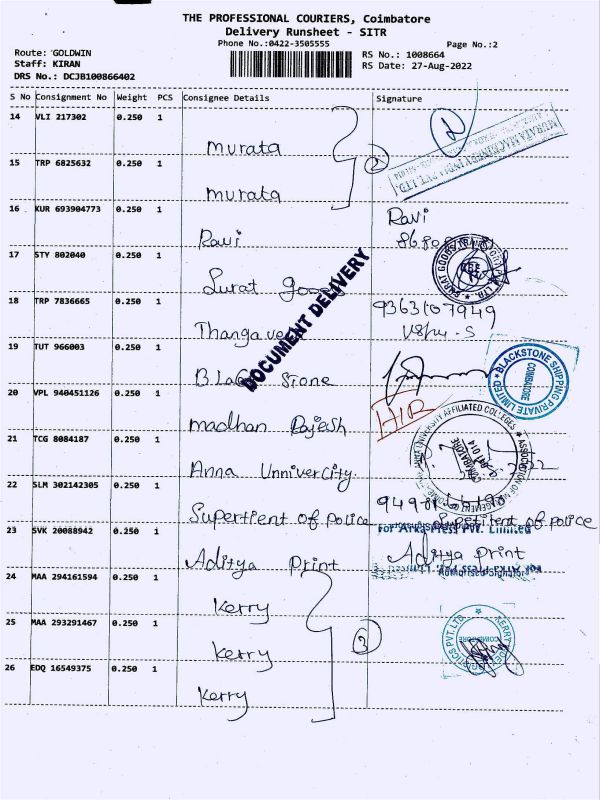 THE PROFESSIONAL COURIERS, Coimbatore
Delivery Runsheet - SITR
Phone No.:0422-3505555
Page No.:2
Route: GOLDWIN
RS No.: 1008664
Staff: KIRAN
RS Date: 27-Aug-2022
DRS No.: DCJB100866402
S No Consignment No Weight PCS Consignee Details Signature
14 VLI 217302 0.250 1
murata
2
2
MURATA MACHINERY INDIA PVT. LTD.
15 TRP 6825632 0.250 1
murata
16 KUR 693904773 0.250 1
Ravi
Ravi
17 STY 802040 0.250 1
Surat goods
SURAT GOODS
18 TRP 7836665 0.250 1
Thangavel
9363107949
DOCUMENT DELIVERY
19 TUT 966003 0.250 1
Black Stone
BLACKSTONE SHIPPING PRIVATE LIMITED
COIMBATORE
20 VPL 940451126 0.250 1
madhan Rajesh
H/R
21 TCG 8084187 0.250 1
Anna Unnivercity
ASSOCIATION OF MANAGEMENT OF COIMBATORE ANNA UNIVERSITY AFFILIATED COLLEGES
COIMBATORE
641 014
22 SLM 302142305 0.250 1
Supertient of Police
of police
23 SVK 20088942 0.250 1
Aditya Print
For Arka Press Pvt. Limited
Aditya print
Authorised Signatory
24 MAA 294161594 0.250 1
Kerry
25 MAA 293291467 0.250 1
Kerry
3
KERRY INDEV LOGISTICS PVT. LTD.
COIMBATORE
26 EDQ 16549375 0.250 1
Kerry